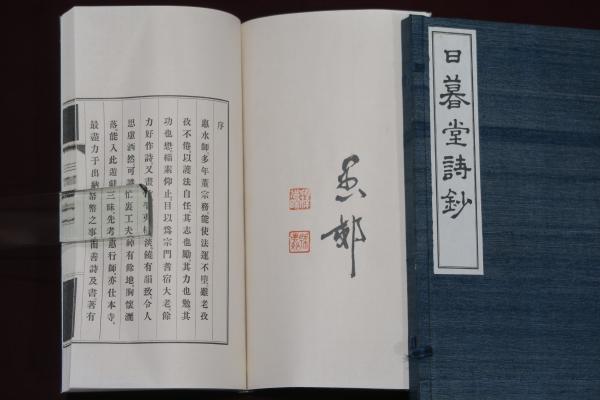 日暮堂詩鈔
序
惠水師多年董宗務能使法運不墜雖老孜
孜不倦以護法自任其志也勵其力也勉其
功也懋、緇素仰止目以爲宗門耆宿大老、餘
力好作詩又畫淡饒有韻致、令人
思慮洒然可謂忙裏工夫綽有餘地胸懷灑
落、能入此遊戲三昧、先考蕙行師、亦仕本寺、
最盡力于出納帑幣之事而善詩及書著有